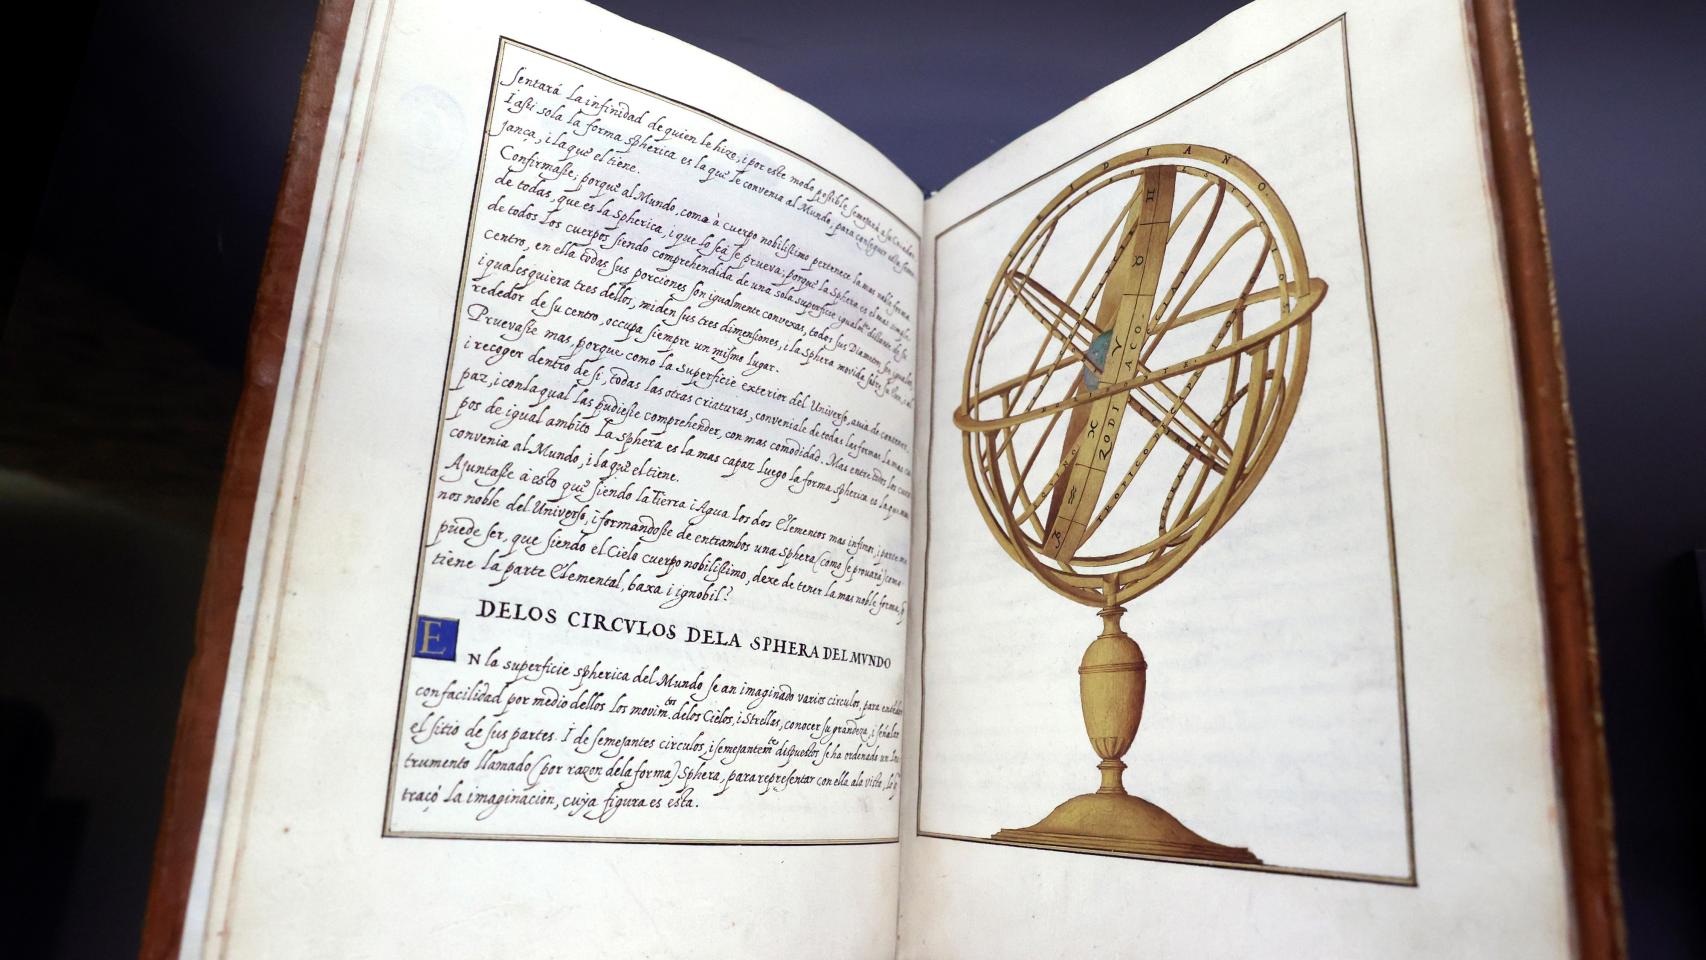 sentará la infinidad de quien le hizo; i por este modo possible semejará a su Criador.
I assi sola la forma spherica es la que le convenia al Mundo, para conseguir esta seme
jança, i la que el tiene.
Confirmasse; porque al Mundo, como à cuerpo nobilissimo pertenece la mas noble forma
de todas, que es la Spherica, i que lo sea se prueva; porque la Sphera es el mas simple
de todos los cuerpos siendo comprehendida de una sola superficie igualmte distante de su
centro, en ella todas sus porciones son igualmente convexas, todos sus Diametros son iguales,
i qualesquiera tres dellos, miden sus tres dimensiones, i la Sphera movida sobre su al
rededor de su centro, occupa siempre un mismo lugar.
Pruevasse mas, porque como la superficie exterior del Universo, avia de contener,
i recoger dentro de si, todas las otras criaturas, conveniale de todas las formas la mas ca
paz, i con la qual las pudiesse comprehender, con mas comodidad. Mas entre todos los cuer
pos de igual ambito la Sphera es la mas capaz luego la forma spherica es la que mas
convenia al Mundo, i la que el tiene.
Ajuntasse à esto que siendo la Tierra i Agua los dos Elementos mas infimos, i parte me
nos noble del Universo, i formandosse de entrambos una Sphera (como se provará) como
puede ser, que siendo el Cielo cuerpo nobilissimo, dexe de tener la mas noble forma, q
tiene la parte Elemental, baxa i ignobil?
DELOS CIRCVLOS DELA SPHERA DEL MVNDO
EN la superficie spherica del Mundo se an imaginado varios circulos, para entender
con facilidad por medio dellos los movimtos delos Cielos, i Strellas, conocer su grandeza, i señalar
el sitio de sus partes. I de semejantes circulos, i semejantemte dispuestos se ha ordenado un Ins
trumento llamado (por razon dela forma) Sphera, para representar con ella ala vista, lo q
traçó la imaginacion, cuya figura es esta.
MERIDIANO
ZODIACO
TROPICO DE CAPRI